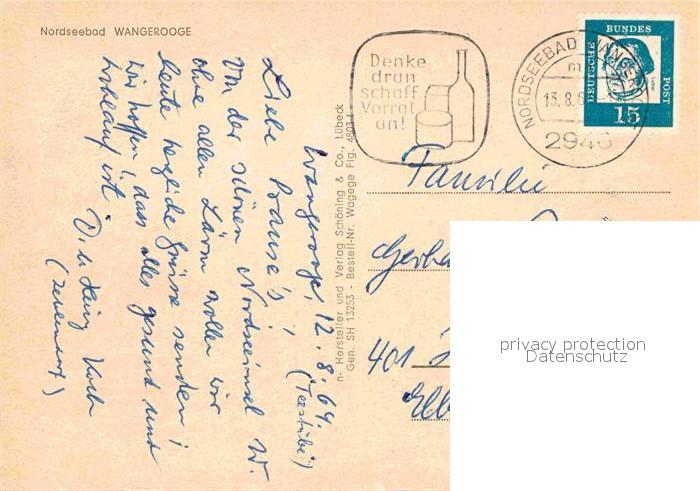 Nordseebad WANGEROOGE
Denke
dran
schaff
Vorrat
an!
NORDSEEBAD WANGEROOGE
13.8.6
2946
DEUTSCHE
BUNDES
POST
15
Wangerooge, 12.8.64.
(Teestube)
Liebe Brause's!
Von der schönen Nordseeinsel W.
ohne allen Lärm wollen wir
heute herzliche Grüsse senden;
wir hoffen, dass alles gesund und
wohlauf ist.
D. u. Heinz Koch
Hersteller und Verlag Schöning & Co., Lübeck
Gen. SH 13253 - Bestell-Nr. Wagege Fg.
Familie
401
privacy protection
Datenschutz